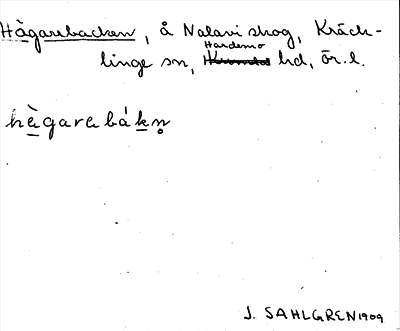 Hàgarebacken, å Nalavi skog, Kräck-
Hardemo
linge sn, hd, Ör. l.
hègarebákn̥
J. SAHLGREN 1909